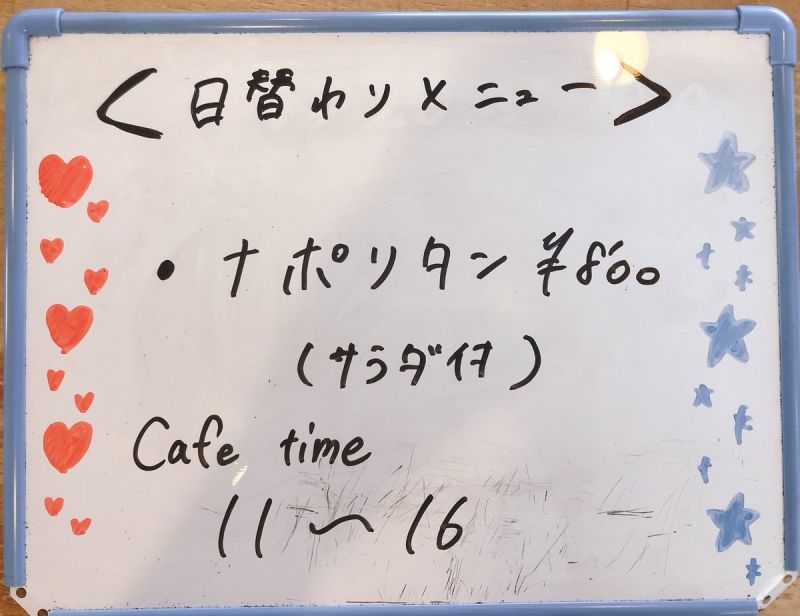 ＜日替わりメニュー＞
・ナポリタン ¥800
(サラダ付)
Cafe time
11〜16